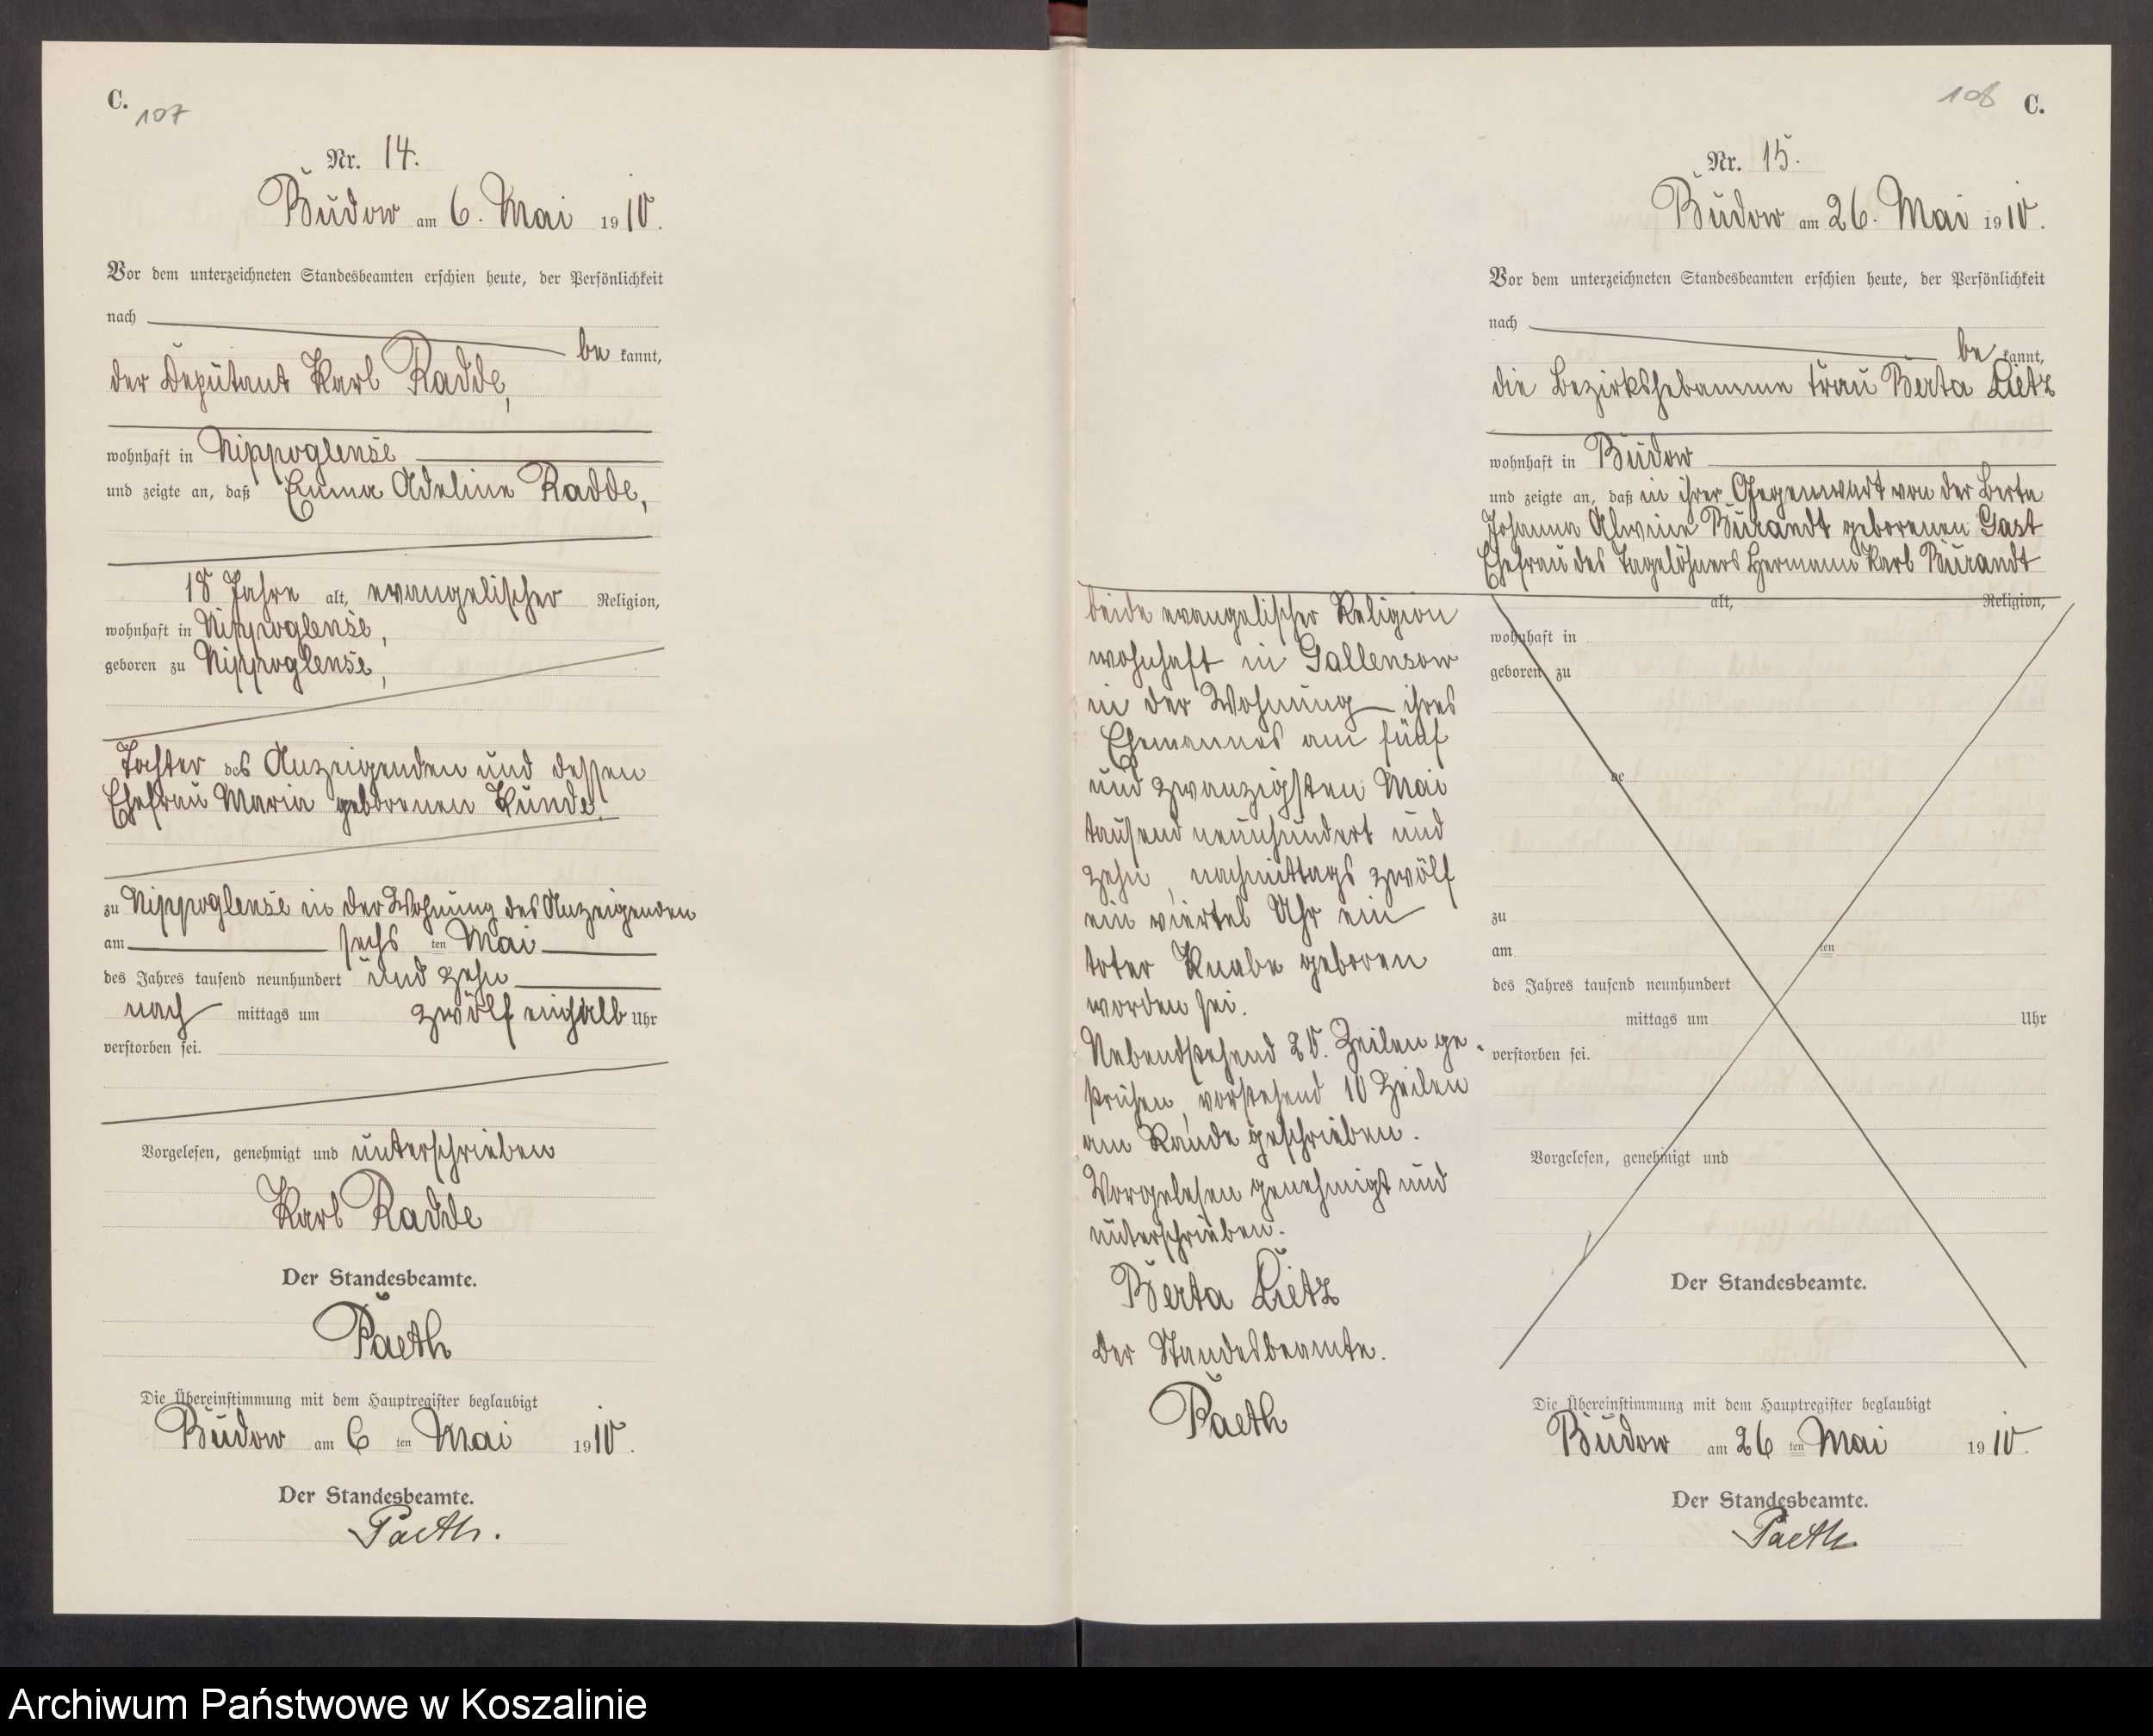 C.
107
Nr. 14.
Budow am 6. Mai 1910.
Vor dem unterzeichneten Standesbeamten erschien heute, der Persönlichkeit
nach
be kannt,
der Deputant Karl Radde,
wohnhaft in Nippoglense
und zeigte an, daß Emma Adeline Radde,
18 Jahre alt, evangelischer Religion,
wohnhaft in Nippoglense,
geboren zu Nippoglense,
Tochter des Anzeigenden und dessen
Ehefrau Maria geborenen Kunde.
zu Nippoglense in der Wohnung des Anzeigenden
am sechs ten Mai
des Jahres tausend neunhundert und zehn
nach mittags um zwölf einhalb Uhr
verstorben sei.
Vorgelesen, genehmigt und unterschrieben
Karl Radde
Der Standesbeamte.
Paeth
Die Übereinstimmung mit dem Hauptregister beglaubigt
Budow am 6 ten Mai 1910.
Der Standesbeamte.
Paeth.
108 C.
Nr. 15.
Budow am 26. Mai 1910.
Vor dem unterzeichneten Standesbeamten erschien heute, der Persönlichkeit
nach
be kannt,
die Bezirkshebamme Frau Berta Lietz
wohnhaft in Budow
und zeigte an, daß in ihrer Gegenwart von der Berta
Johanna Alwine Burandt geborenen Gast
Ehefrau des Tagelöhners Hermann Karl Burandt
alt, Religion,
wohnhaft in
geboren zu
ge
zu
am ten
des Jahres tausend neunhundert
mittags um Uhr
verstorben sei.
Vorgelesen, genehmigt und
Der Standesbeamte.
beide evangelischer Religion
wohnhaft in Gallensow
in der Wohnung ihres
Ehemannes am fünf
und zwanzigsten Mai
tausend neunhundert und
zehn, nachmittags zwölf
ein viertel Uhr ein
toter Knabe geboren
worden sei.
Nebenstehend 20. Zeilen ge-
strichen, vorstehend 10 Zeilen
am Rande geschrieben.
Vorgelesen genehmigt und
unterschrieben.
Berta Lietz
Der Standesbeamte.
Paeth
Die Übereinstimmung mit dem Hauptregister beglaubigt
Budow am 26 ten Mai 1910.
Der Standesbeamte.
Paeth
Archiwum Państwowe w Koszalinie